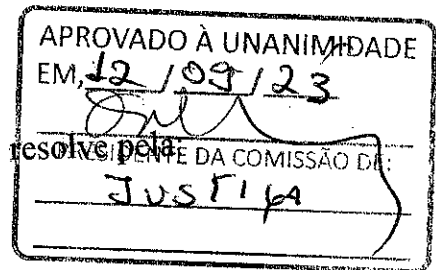 APROVADO À UNANIMIDADE
EM, 12 / 09 / 23
resolve pela
PRESIDENTE DA COMISSÃO DE:
JUSTIÇA